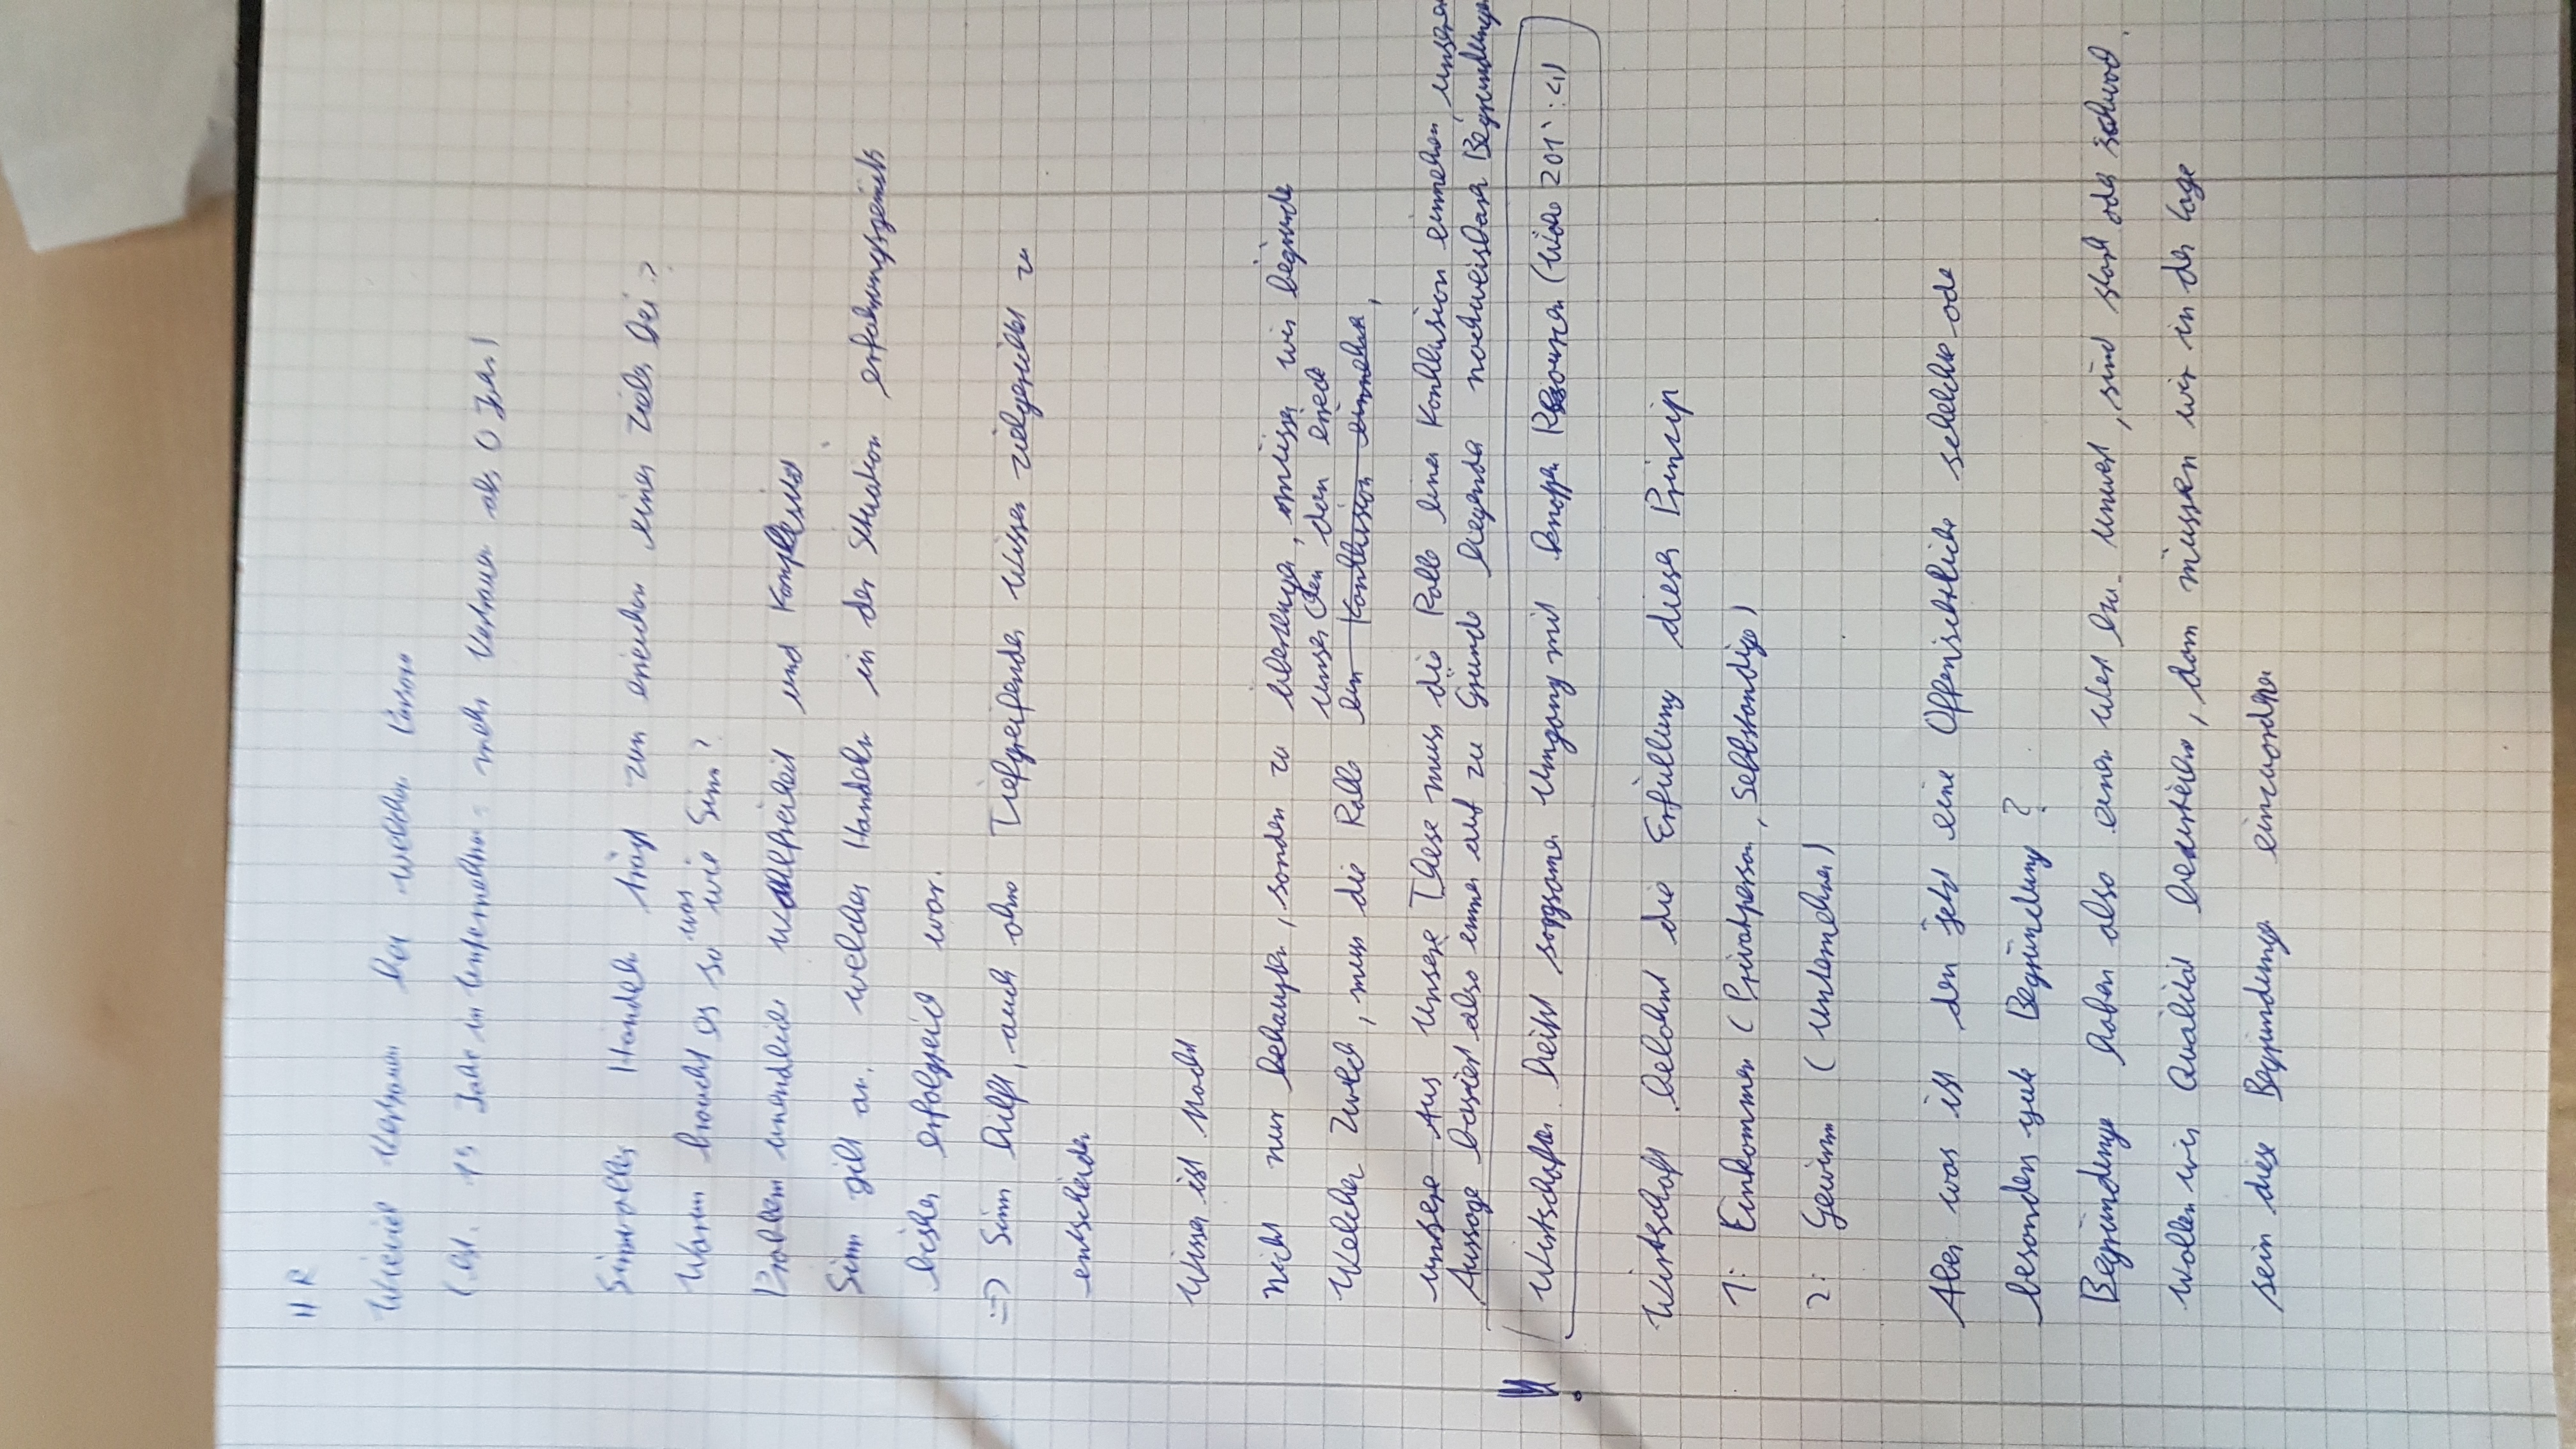 HR
Wieviel Vertrauen bei welcher Person
15 Jahre in Unternehmen = mehr Vertrauen als 0 Jahre)
Sinnvolles Handeln trägt zum erreichen eines Ziels bei
Warum braucht es so was wie Sinn?
Problem unendliche Wahlfreiheit und Komplexität
Sinn gibt an, welches Handeln in der Situation erfahrungsgemäß
bisher erfolgreich war.
=> Sinn hilft, auch ohne Tiefgreifendes Wissen zielgerichtet zu
entscheiden
Wissen ist Macht
Nicht nur behaupten, sondern zu überzeugen, müssen wir begründen
unser den dan
Welcher Zweck, muss die Rolle ein Konklusion einnehmen,
unsere Aus Unsere These muss die Rolle einer Konklusion einnehmen, unsere
Aussage basiert also immer auf zu Grunde liegenden nachweisbaren Begründungen
Wirtschaften heißt sorgsamer Umgang mit knappen Resourcen
Wirtschaft belohnt die Erfüllung dieses Prinzip
1: Einkommen (Privatperson, Selbständige)
2: Gewinn (Unternehmen)
Aber was ist den jetzt eine Offensichtliche schelchte oder
besonders gute Begründung?
Begründunge haben also einen Wert bzw. Unwert, sind stark oder schwach.
Wollen wir Qualität beurteilen, dann müssen wir in der Lage
sein diese Begründunge einzuordnen